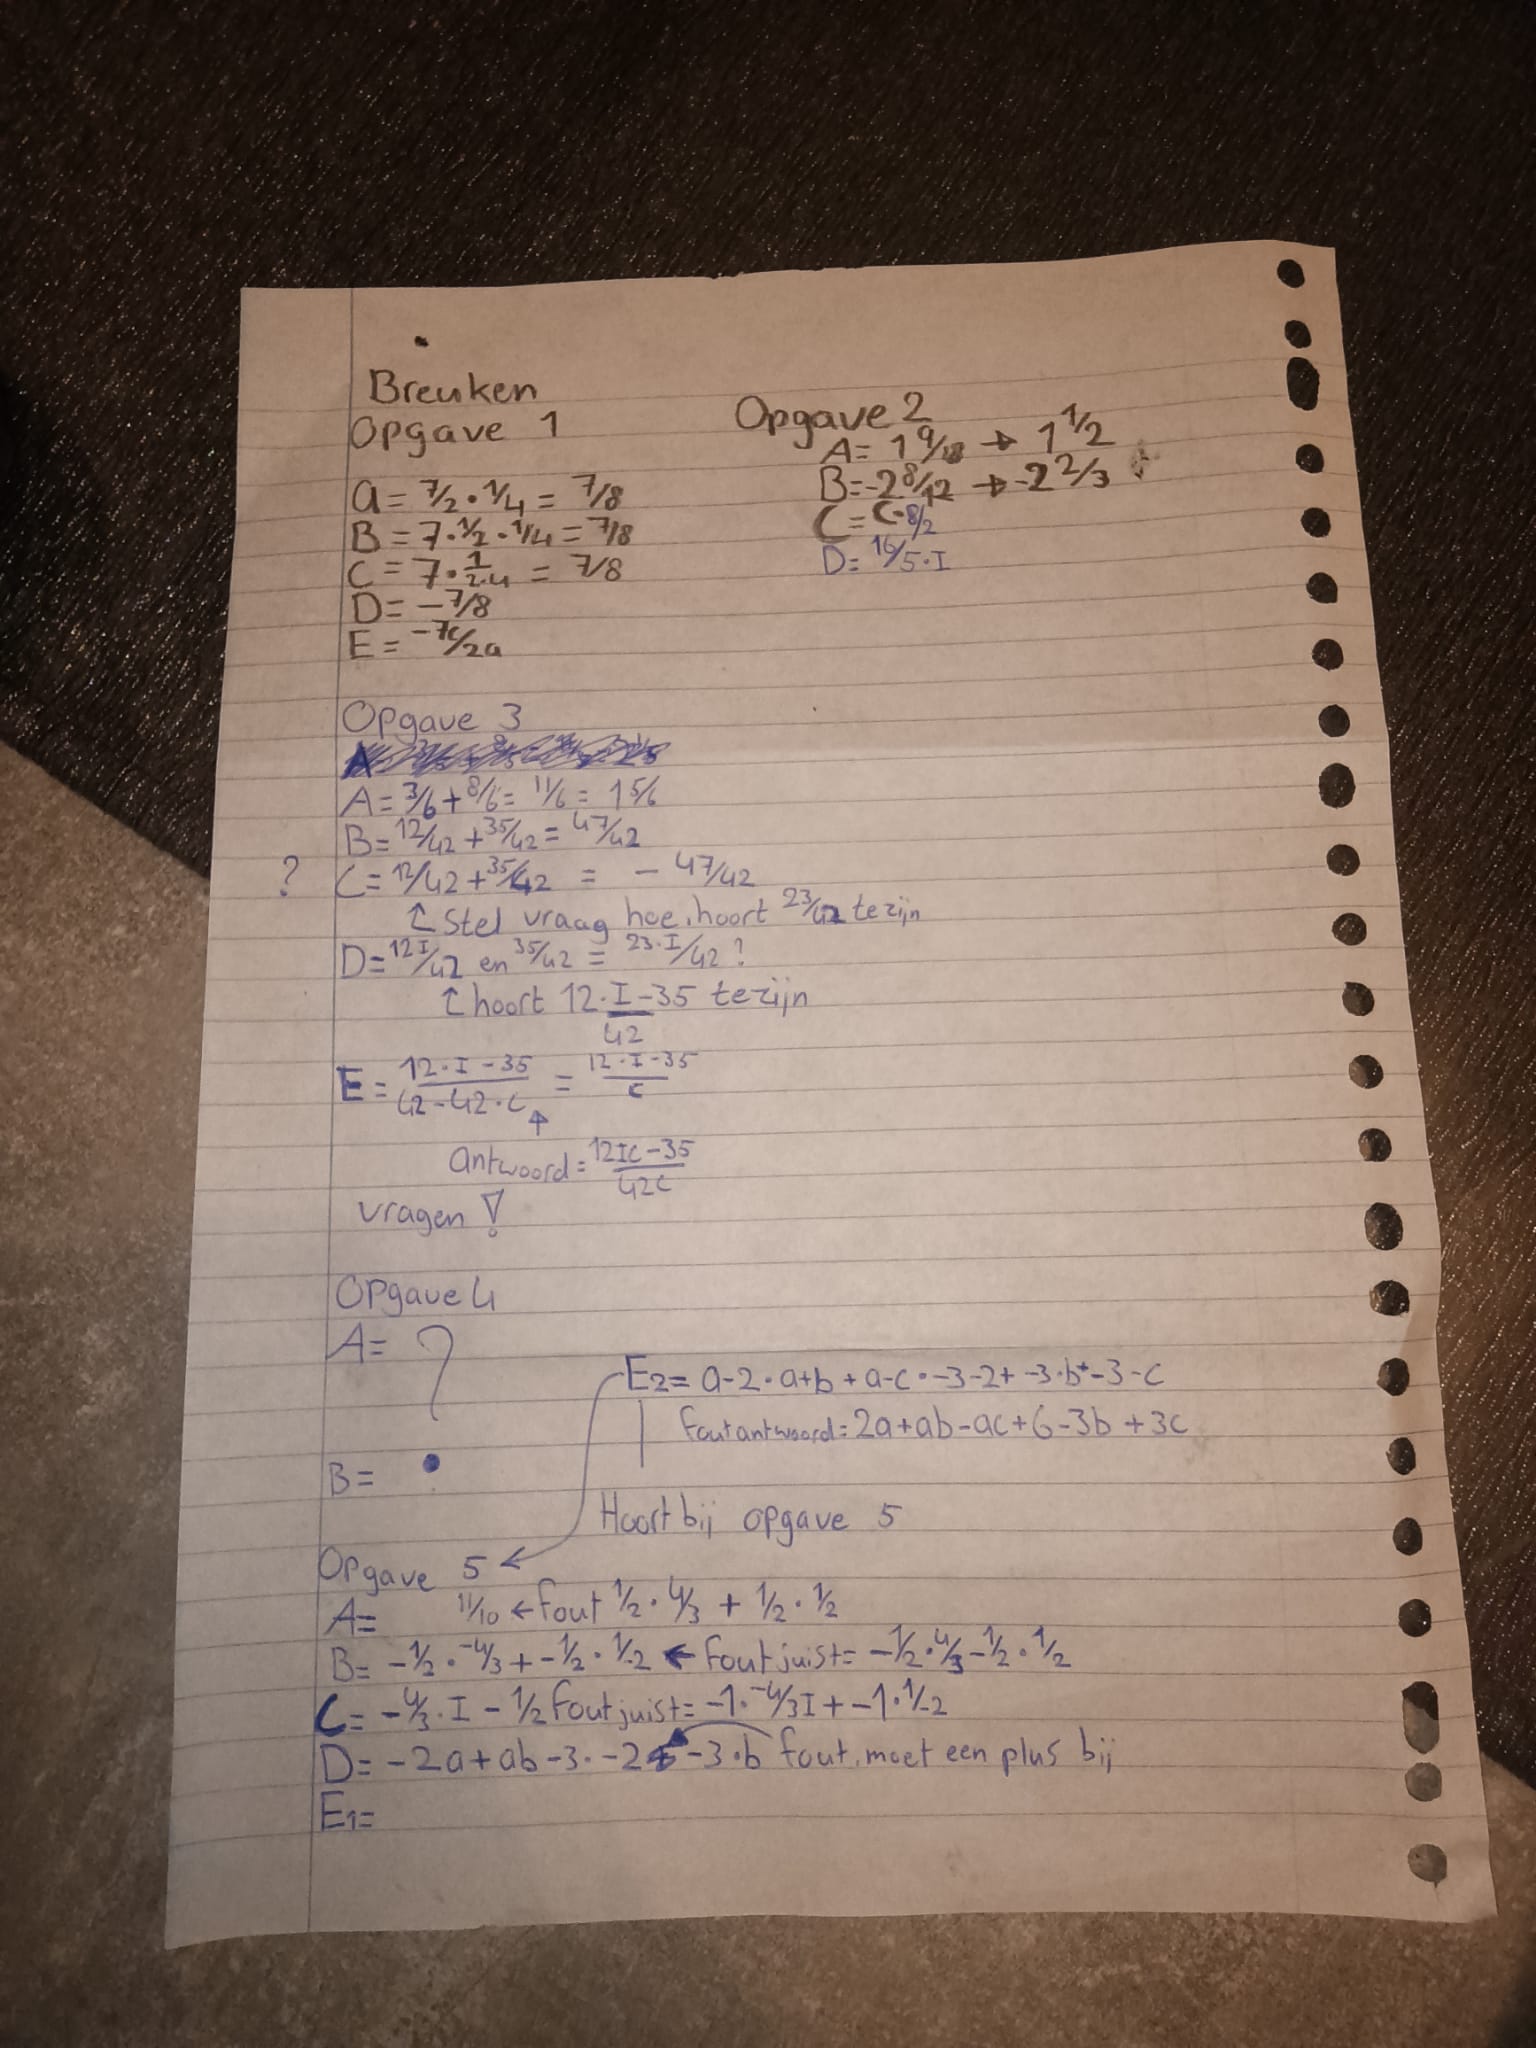 Breuken
Opgave 1
a = 7/2 · 1/4 = 7/8
B = 7 · 1/2 · 1/4 = 7/8
C = 7 · 1/2·4 = 7/8
D = -7/8
E = -7c/2a
Opgave 2
A = 1 9/18 → 1 1/2
B = -2 8/12 → -2 2/3
C = C · 8/2
D = 16/5 · I
Opgave 3
A = 3/6 + 8/6 = 11/6 = 1 5/6
B = 12/42 + 35/42 = 47/42
? C = 12/42 + 35/42 = - 47/42
↑ Stel vraag hoe, hoort 23/42 te zijn
D = 12I/42 en 35/42 = 23·I/42 ?
↑ hoort 12·I-35/42 te zijn
E = 12·I-35/42-42·C = 12·I-35/c
↑
antwoord = 12Ic-35/42c
vragen !
Opgave 4
A = ?
B =
E2 = a-2·a+b+a-c·-3-2+-3·b+-3-c
fout antwoord = 2a+ab-ac+6-3b+3c
Hoort bij opgave 5
Opgave 5
A = 11/10 ← fout 1/2 · 4/3 + 1/2 · 1/2
B = -1/2 · -4/3 + -1/2 · 1/-2 ← fout juist = -1/2 · 4/3 - 1/2 · 1/2
C = -4/3 · I - 1/2 fout juist = -1 · -4/3 I + -1 · 1/-2
D = -2a + ab -3 · -2 + -3 · b fout, moet een plus bij
E1 =